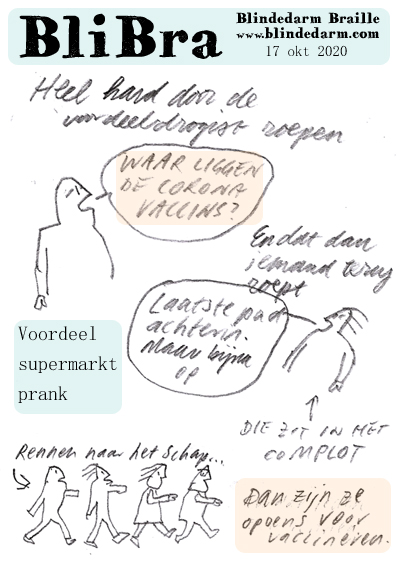 BliBra
Blindedarm Braille
www.blindedarm.com
17 okt 2020
Heel hard door de
voordeeldrogist roepen
WAAR LIGGEN
DE CORONA
VACCINS?
En dat dan
iemand terug
roept
Laatste pad
achterin.
Maar bijna
op
Voordeel
supermarkt
prank
DIE ZIT IN HET
COMPLOT
Rennen naar het schap...
Dan zijn ze
opeens voor
vaccineren.